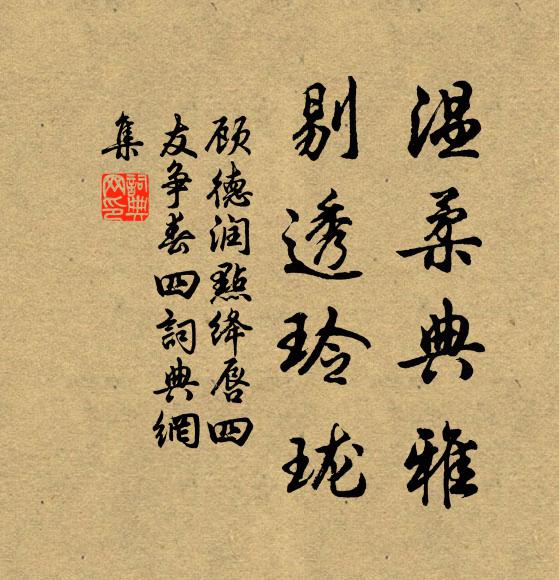 温柔典雅
剔透玲珑
顾德润點绛唇四
友争春四詞典網
集
詞典
网印